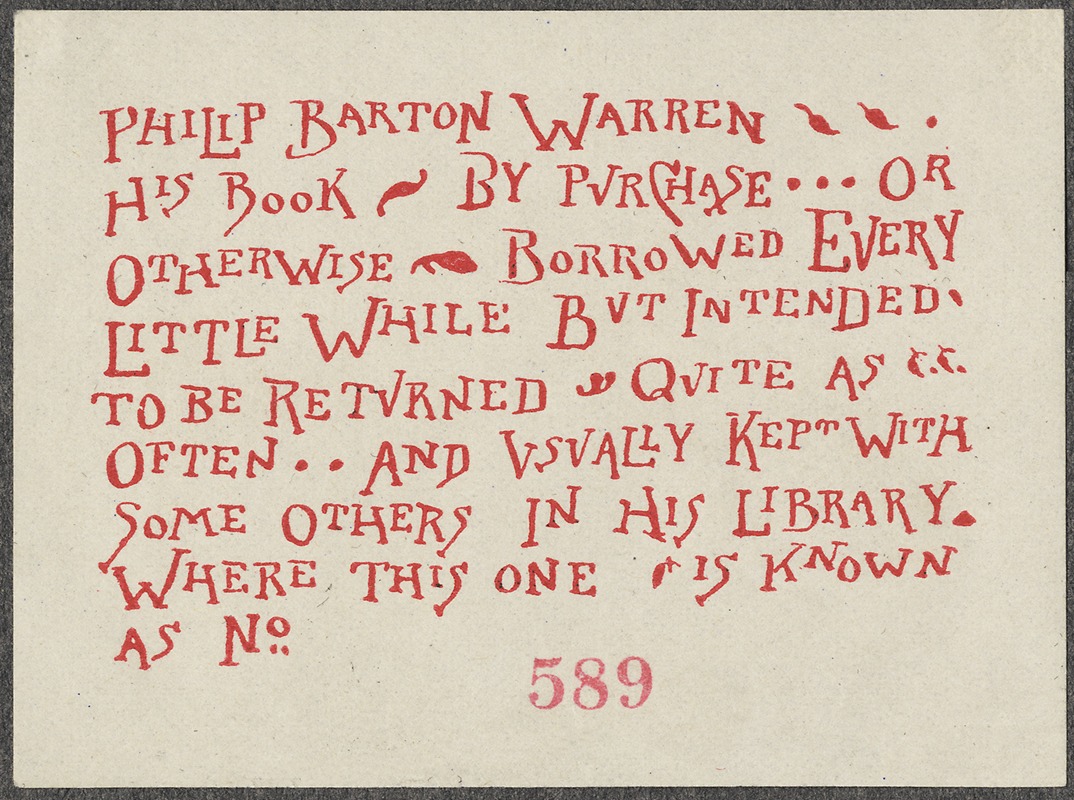 PHILIP BARTON WARREN .
HIS BOOK ~ BY PVRCHASE ... OR
OTHERWISE ~ BORROWED EVERY
LITTLE WHILE BVT INTENDED
TO BE RETVRNED QVITE AS
OFTEN .. AND VSVALLY KEPT WITH
SOME OTHERS IN HIS LIBRARY.
WHERE THIS ONE IS KNOWN
AS No
589